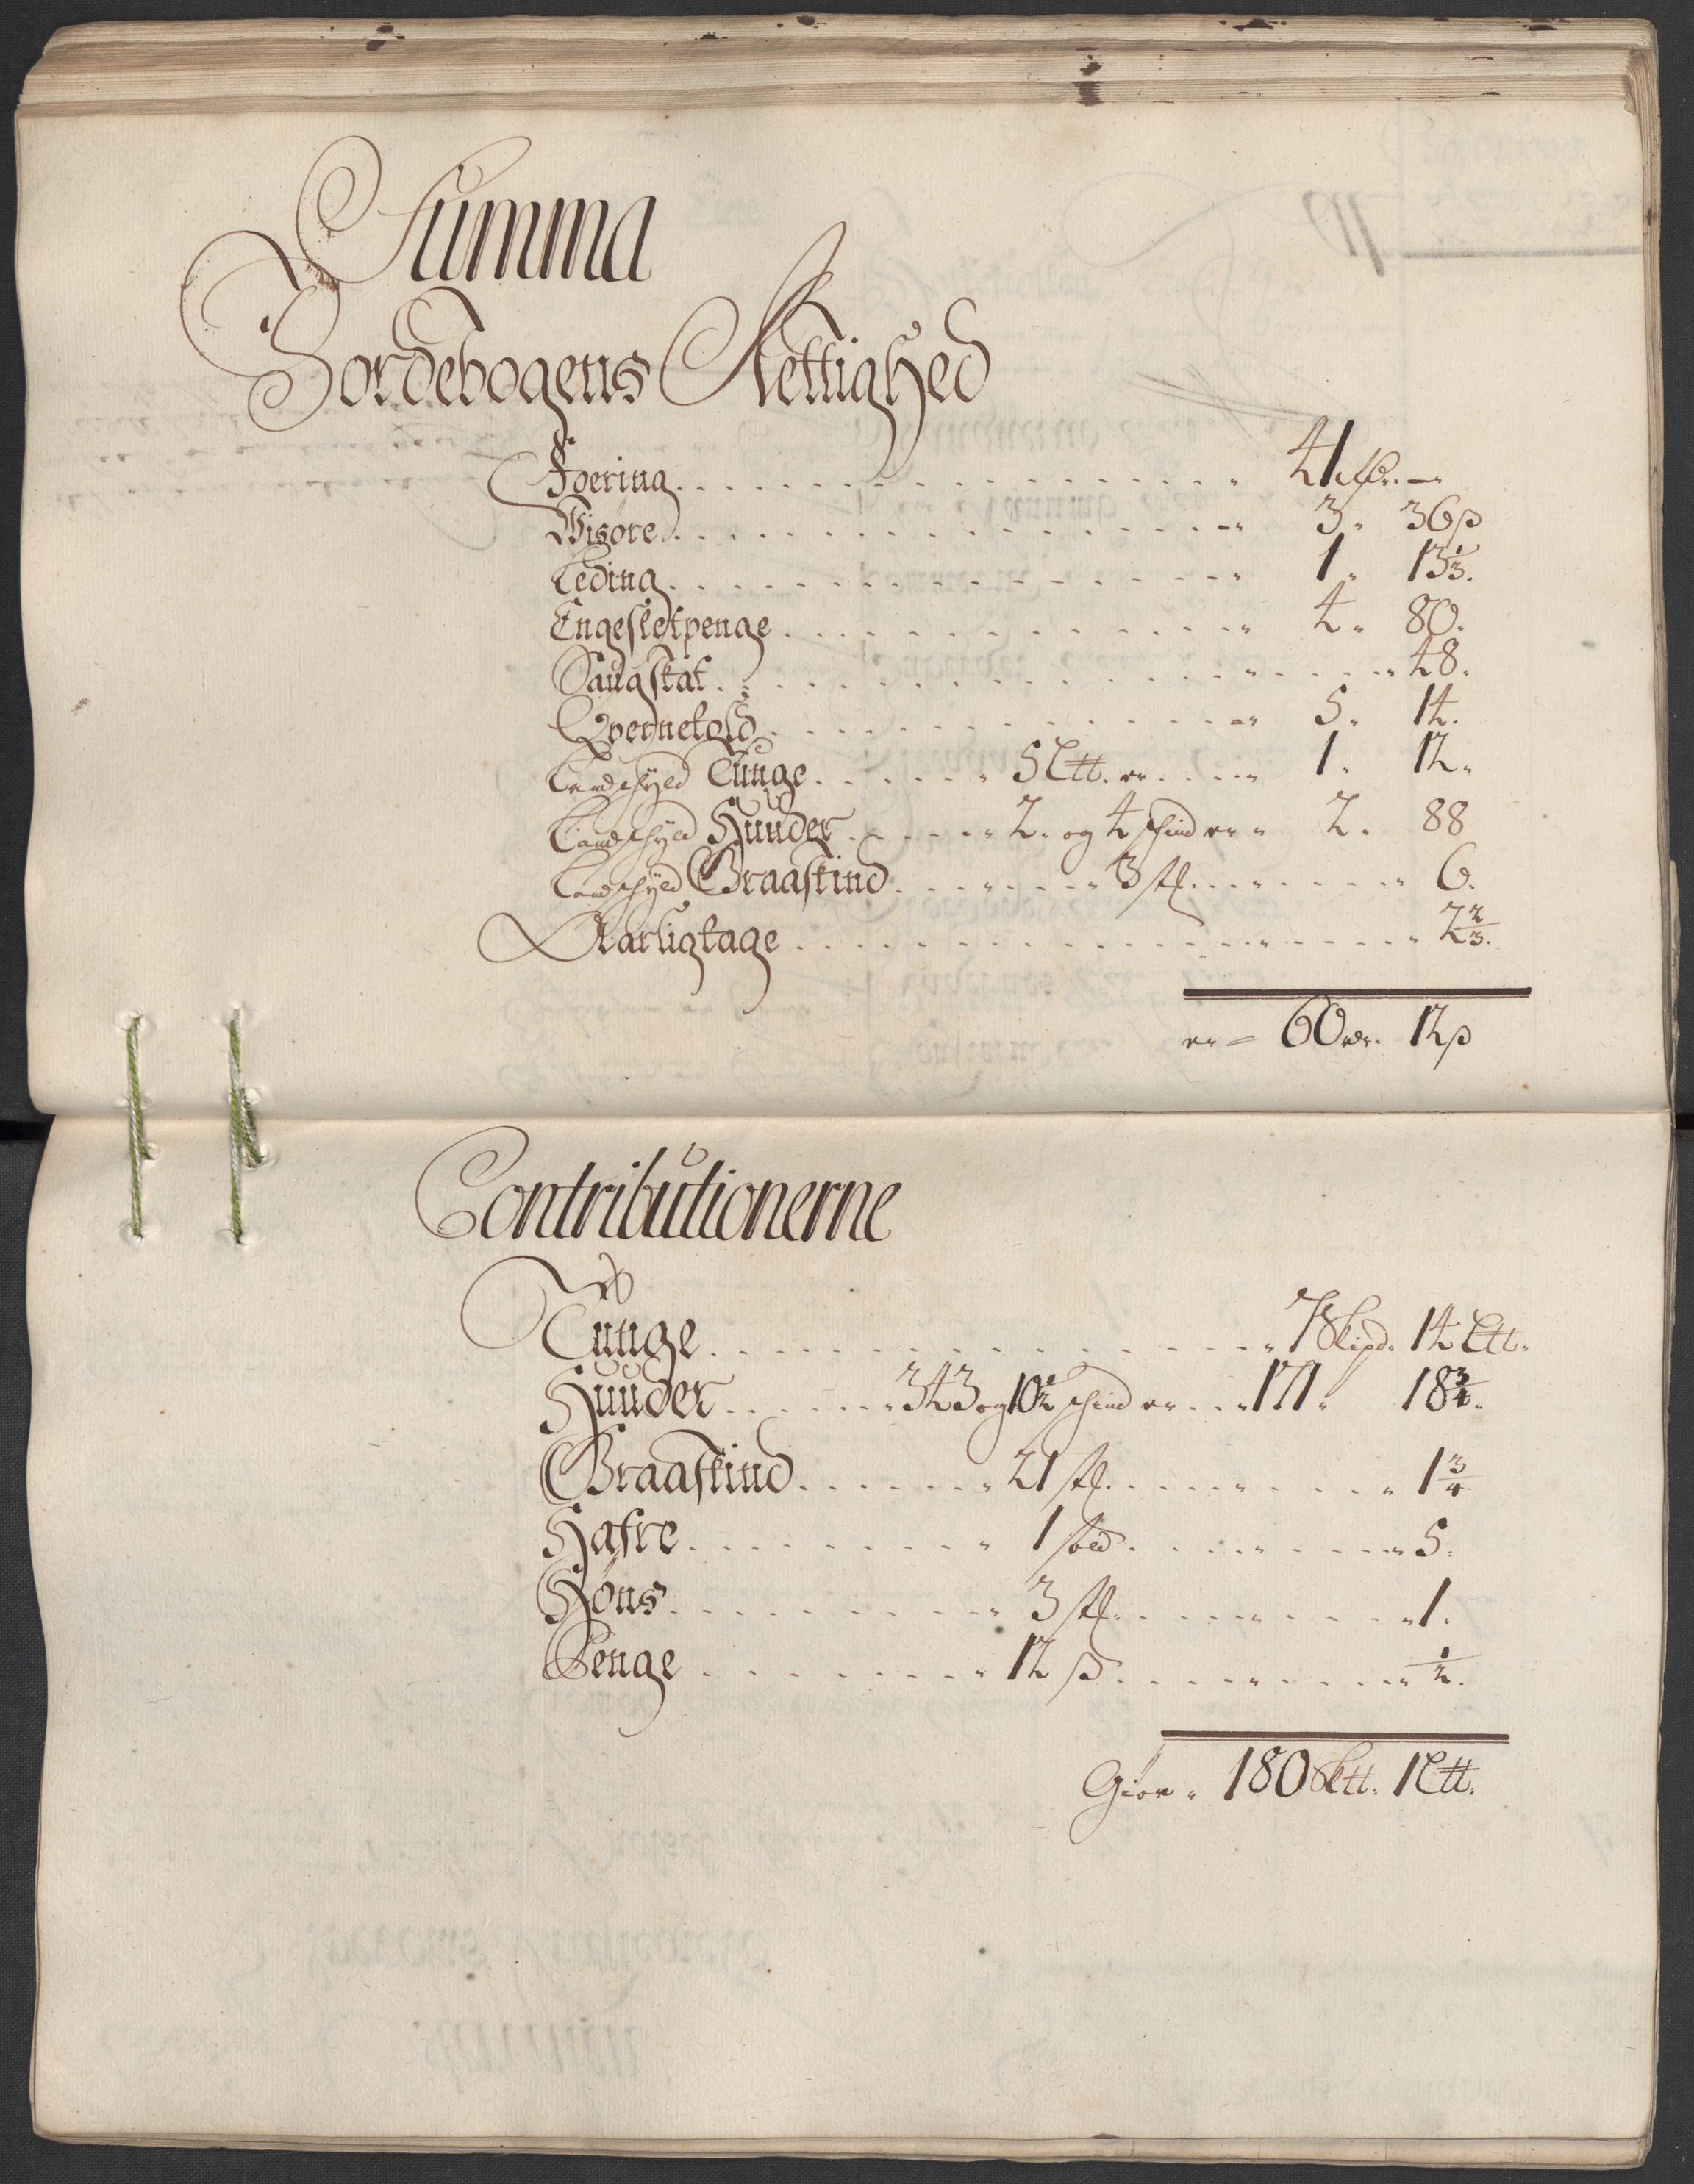 Summa
Jordebogens Rettighed
Foering . . . . . 41 rdr. —
Wisøre . . . . . 3. 36 ß
Leding . . . . . 1. 13⅓.
Engesletpenge . . . . . 4. 80.
Saugskat . . . . . 48.
Qvernetold . . . . . 5. 14.
Landschyld Tunge . . . . . 5 Ltt. er . . . 1. 12.
Landschyld Huuder . . . . . 2. og 4 schind er. 2. 88
Landschyld Graaskind . . . . . 3 st. . . . . 6.
Aarligtage . . . . . 2⅔.
er = 60 rdr. 12 ß
Contributionerne
Tunge . . . . . 7 Skipd. 14 Ltt.
Huuder . . . . . 343 og 10½ schind er . . . 171. 18¾.
Graaskind . . . . . 21 st. . . . . 1¾
Hafre . . . . . 1 sold . . . . . 5.
Høns . . . . . 3 st. . . . . 1.
Penge . . . . . 12 ß . . . . . ½.
Giør. 180 Sktt. 1 Ltt.